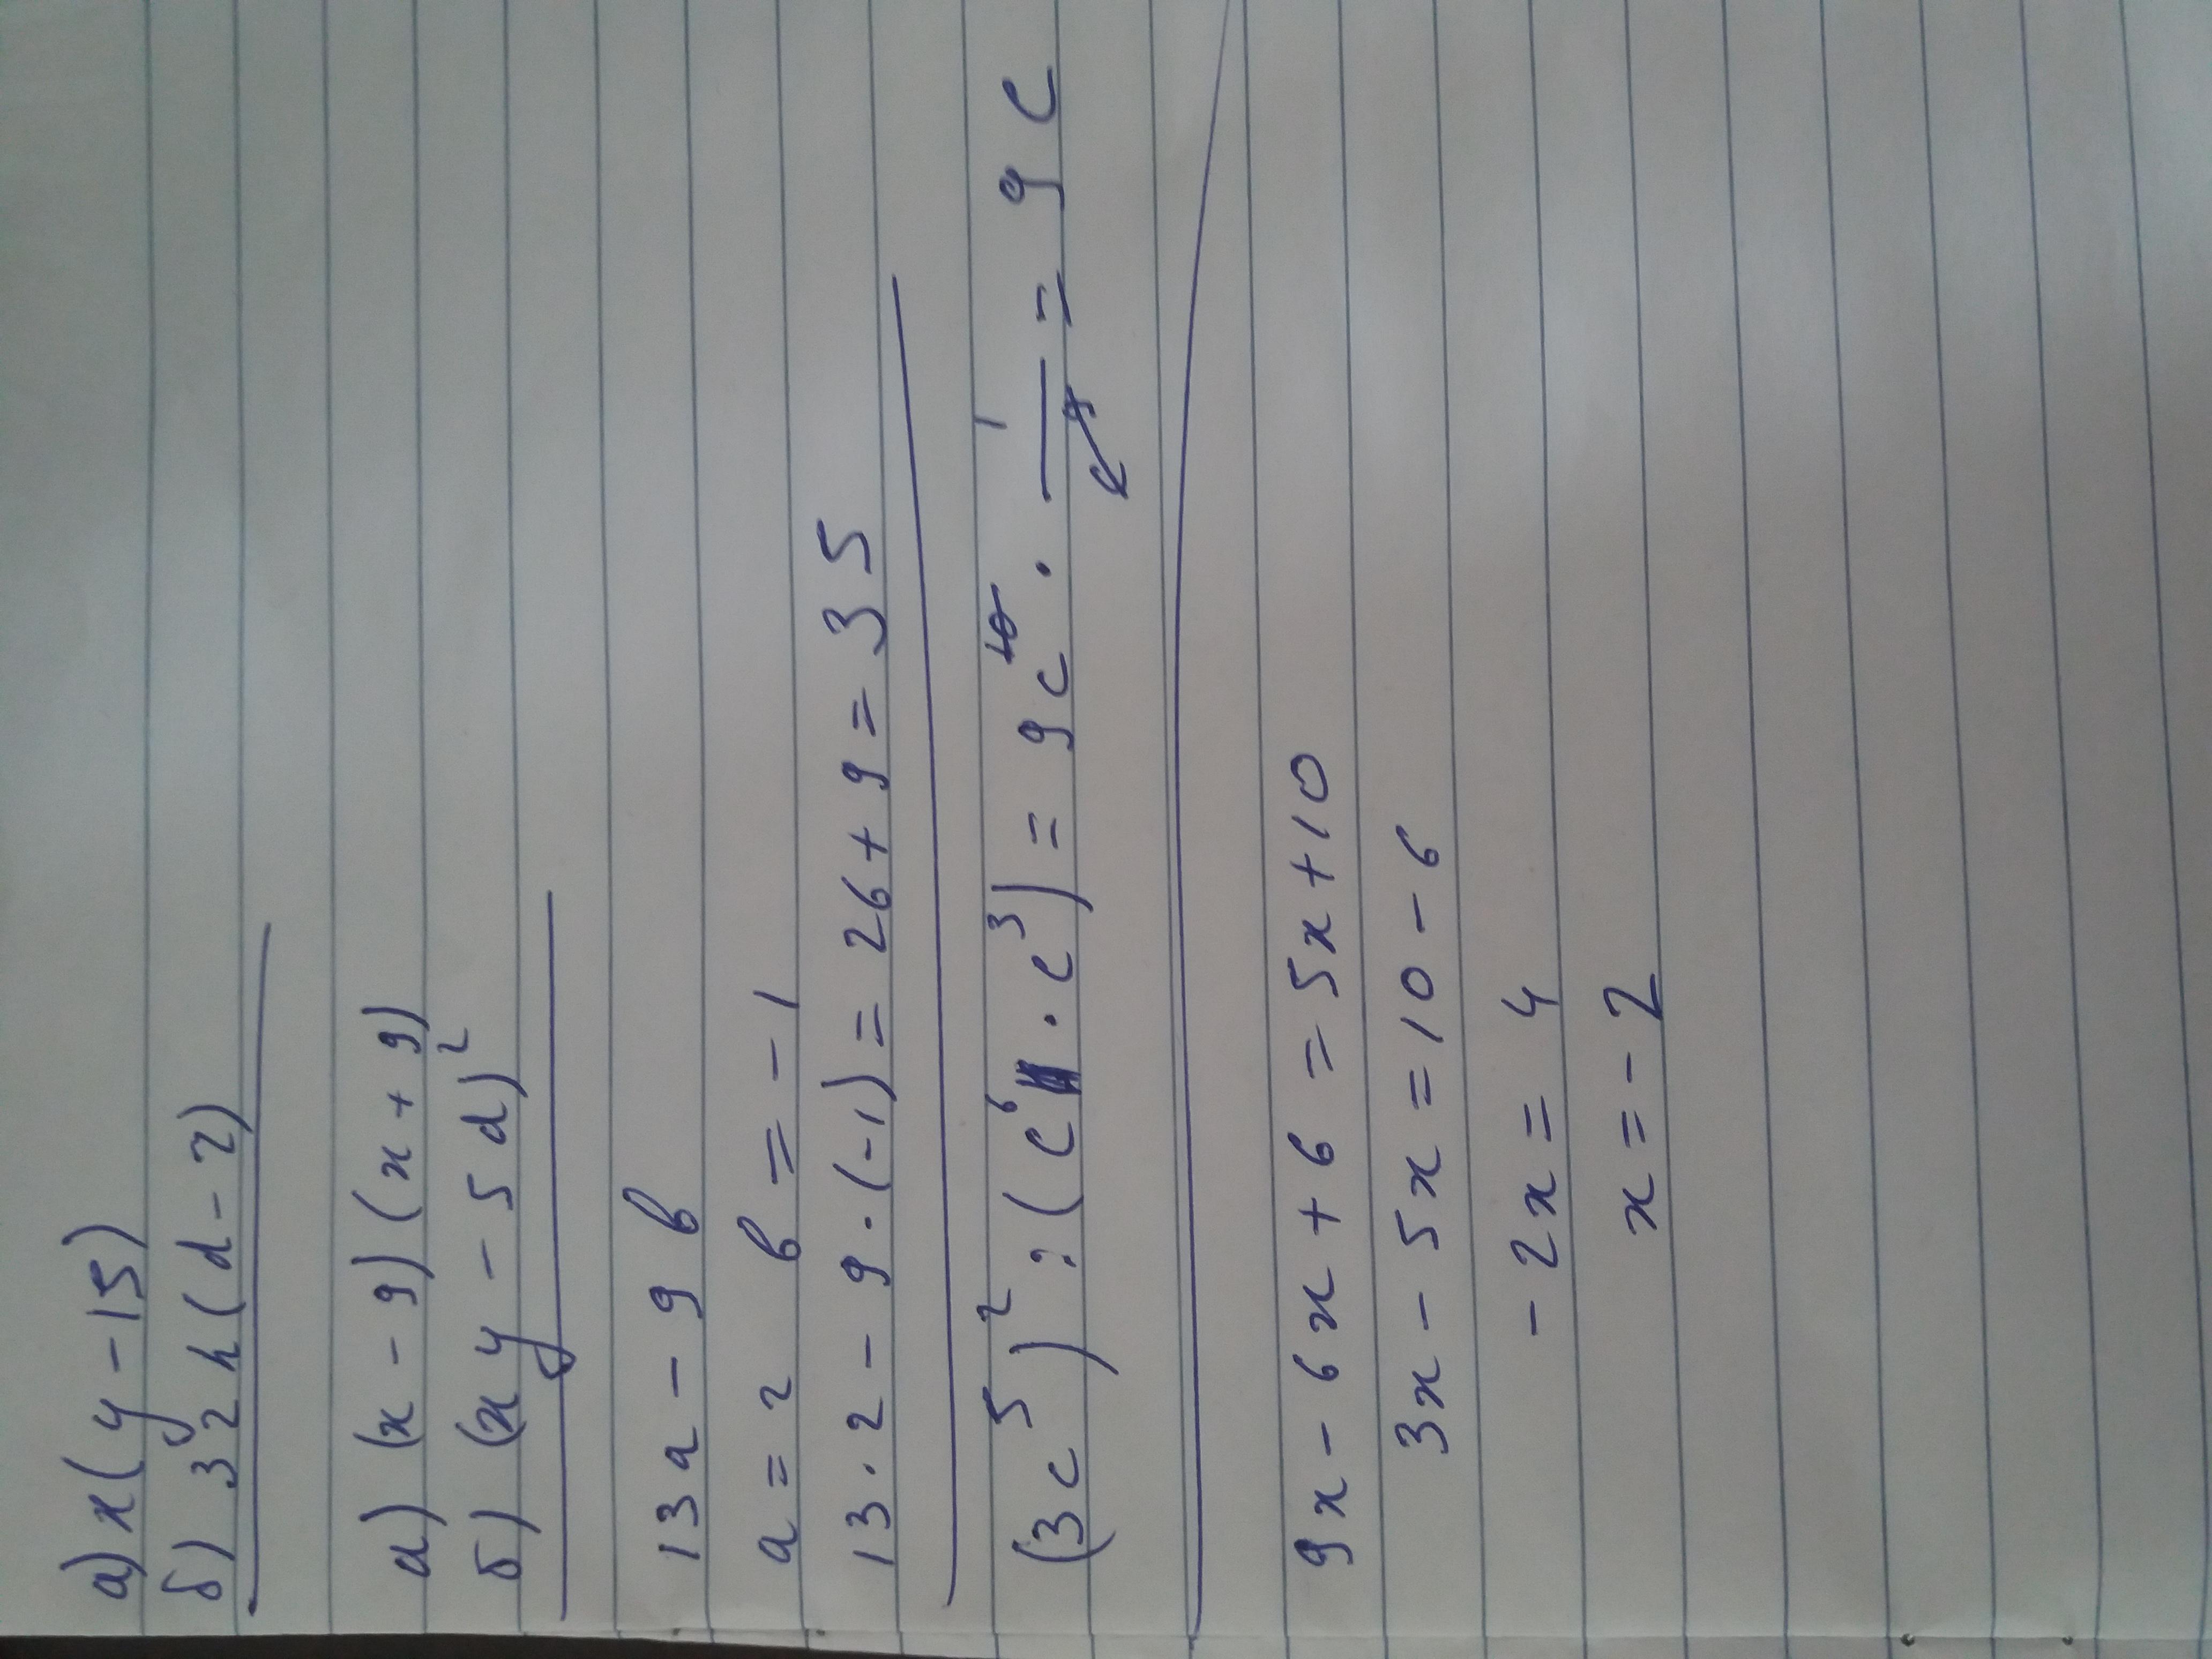 а) x(y-15)
б) 32h(d-2)
а) (x-9)(x+9)
б) (xy-5d)²
13a-9b
a=2 b=-1
13·2-9·(-1)=26+9=35
(3c⁵)²:(c⁶·c³)=9c¹⁰·1/c⁹=9c
9x-6x+6=5x+10
3x-5x=10-6
-2x=4
x=-2